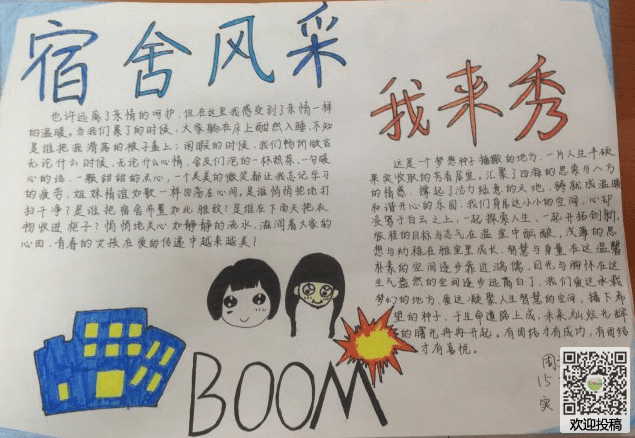 宿舍风采
我来秀
也许远离了亲情的呵护,但在这里我感受到了亲情一样
的温暖。当我们累了的时候,大家躺在床上酣然入睡,不知
是谁把我滑落的被子盖上;闲暇的时候,我们畅所欲言
无论什么时候,无论什么心情,舍友们泡的一杯热茶,一句暖
心的话,一颗甜甜的点心,一个美美的微笑都让我忘记学习
的疲劳,姐妹情谊如歌一样回荡在心间,是谁悄悄把地打
扫干净了是谁把宿舍布置如此雅致?是谁在下雨天把衣
物收进柜子?悄悄地关心如静静的流水,滋润着大家的
心田,青春的女孩在爱的传递中越来越美!
这是个梦想种子播撒的地方,一片人生丰硕
果实收取的秀春居室,汇聚了四海的思索与八方
的情感,撑起了活力绿意的天地,铸就成温暖
和谐开心的乐园,我们身居这小小的空间,心却
交驾于白云之上,一起探索人生,一起开拓创新,
旅程的目标与志气在温室中酝酿,浅薄的思
想与幼稚在雅室里成长,智慧与身量在这温馨
朴素的空间逐步靠近鸿儒,目光与胸怀在这
生气盎然的空间逐步远离自己,我们爱这承载
梦幻的地方,爱这凝聚人生智慧的空间,播下希
望的种子,于生命道路上成,未来灿烂光辉
的曙光冉冉升起。有团结才有成功,有团结
才有喜悦。
BOOM
周
15
实
欢迎投稿